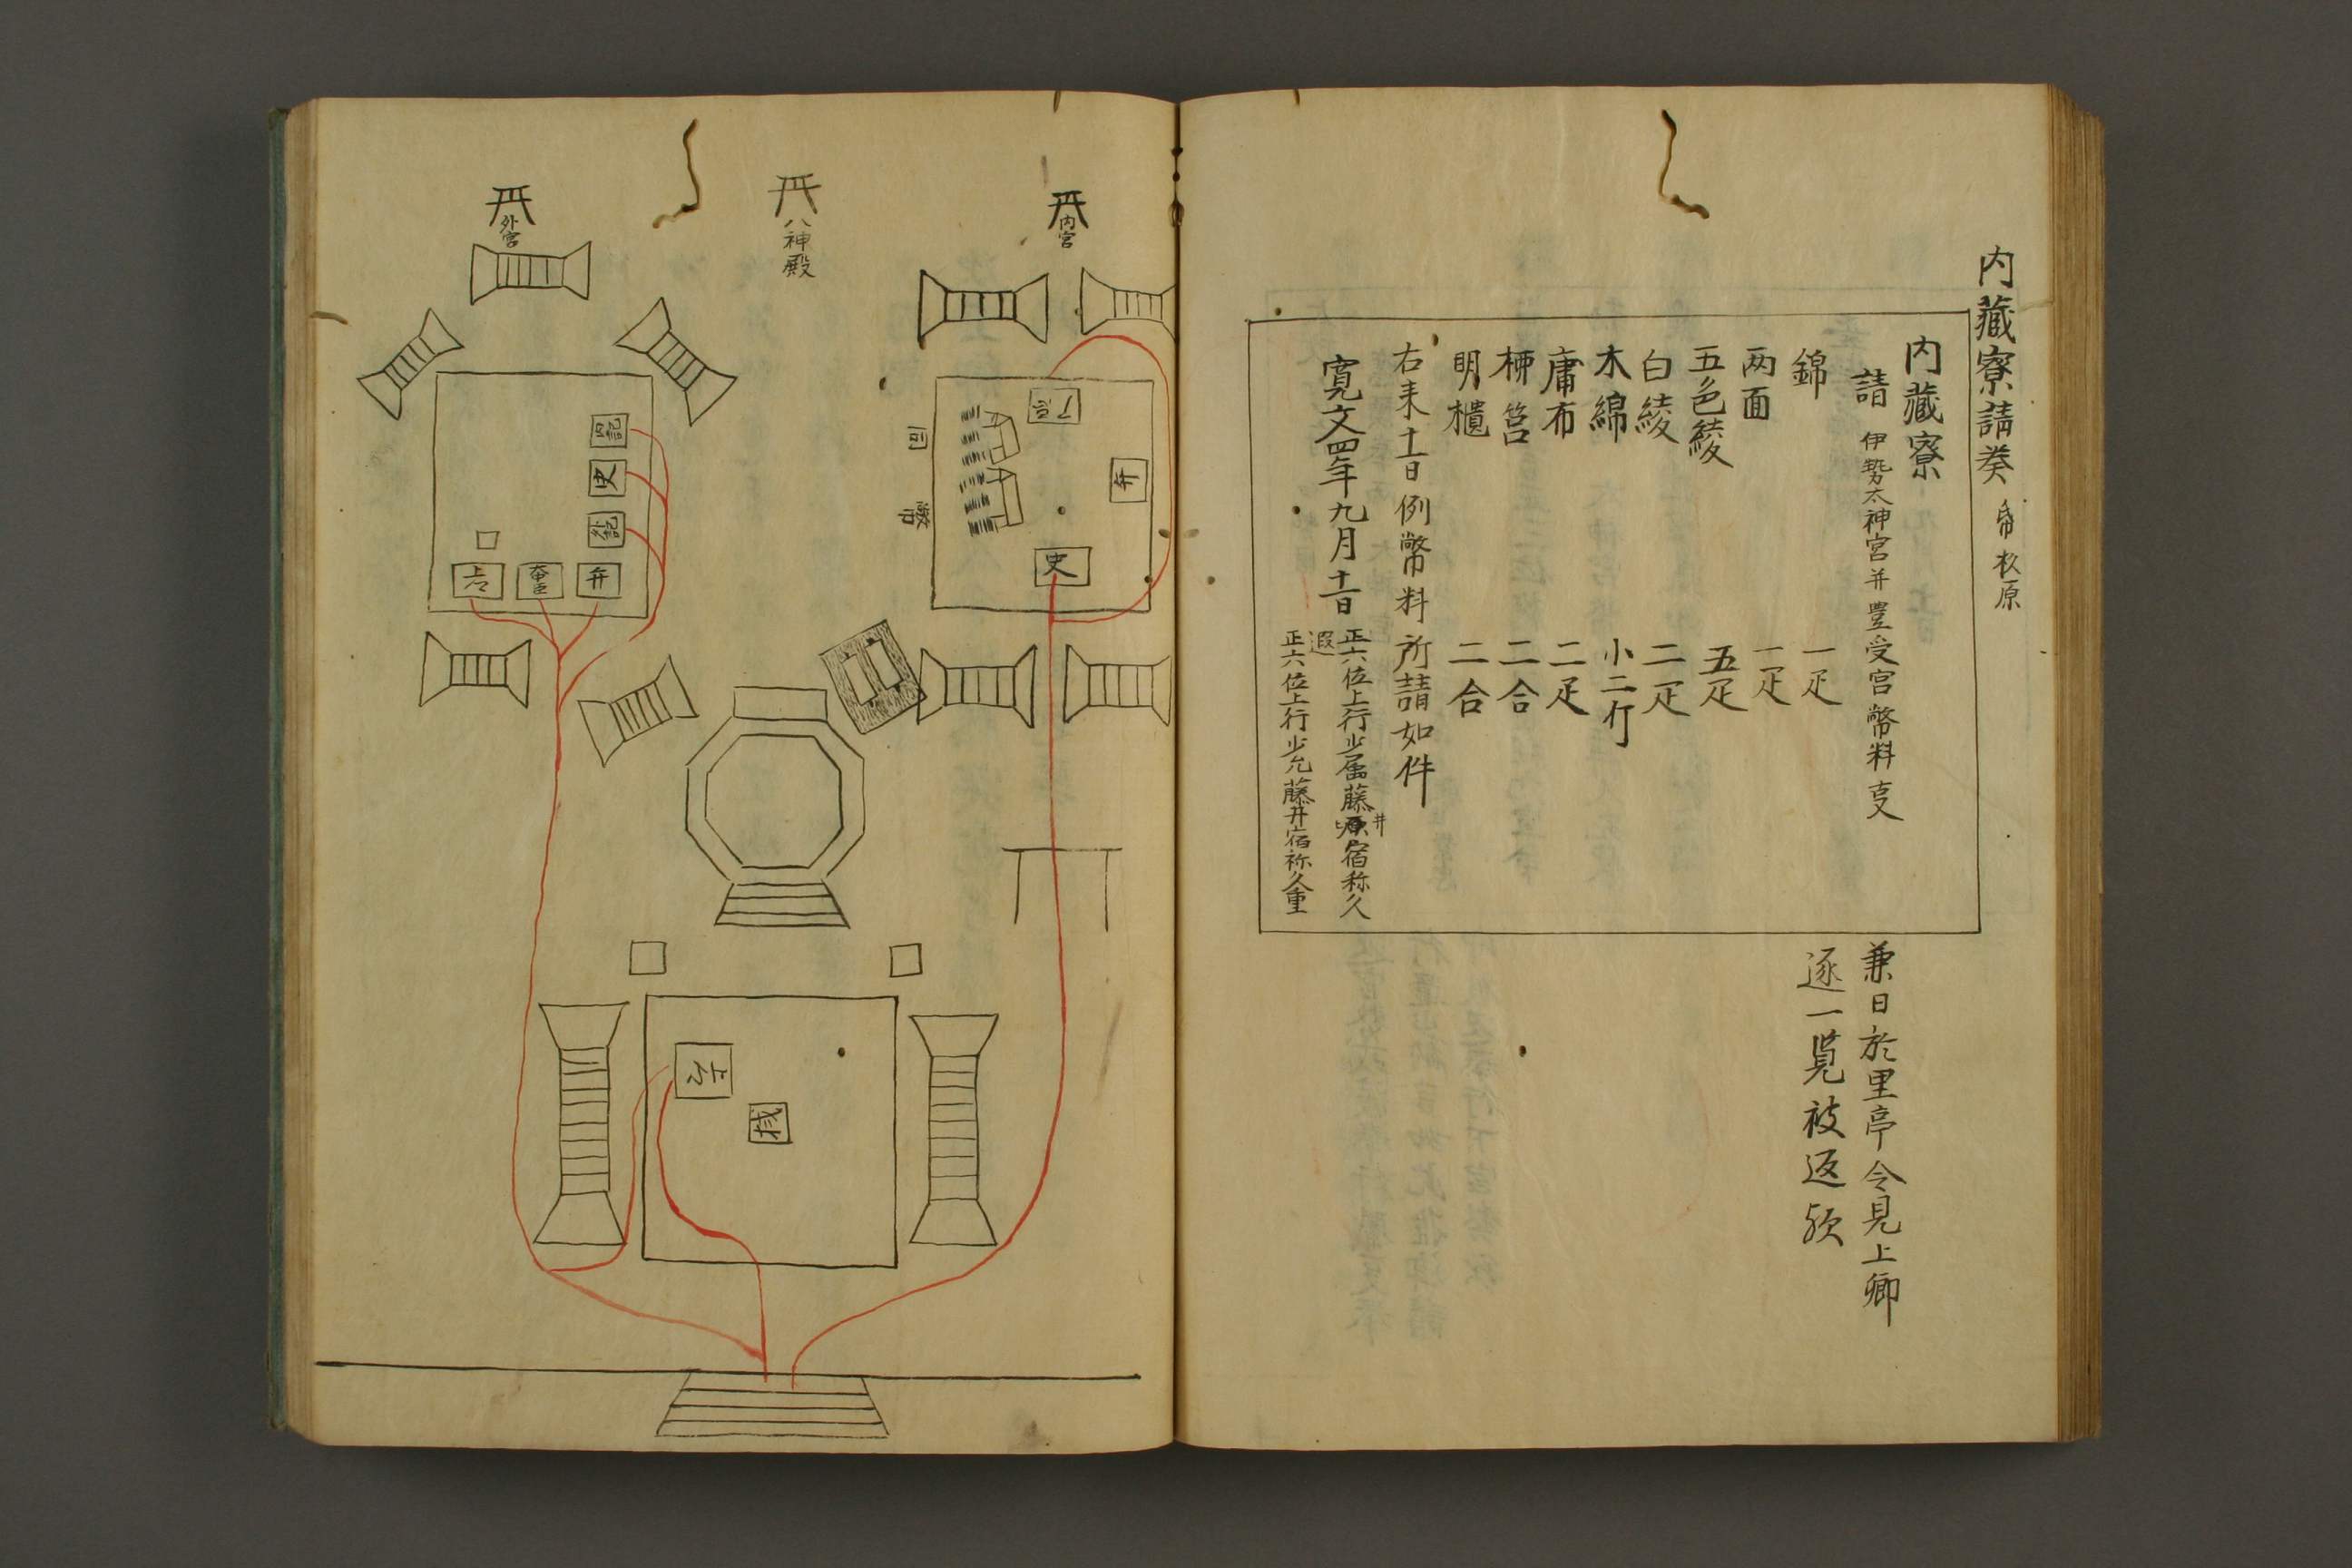 内藏寮請奏 帋杉原
内藏寮
請 伊勢太神宮并豊受宮幣料支
錦 一疋
两面 一疋
五色綾 五疋
白綾 二疋
木綿 小二斤
庸布 二疋
柳筥 二合
明櫃 二合
右来十一日例幣料所請如件
寛文四年九月十一日 正六位上行少属藤原井宿祢久
遐
正六位上行少允藤井宿祢久重
兼日於里亭令見上卿
逐一覧被返欤
内宮
八神殿
外宮
弁
史
史
弁